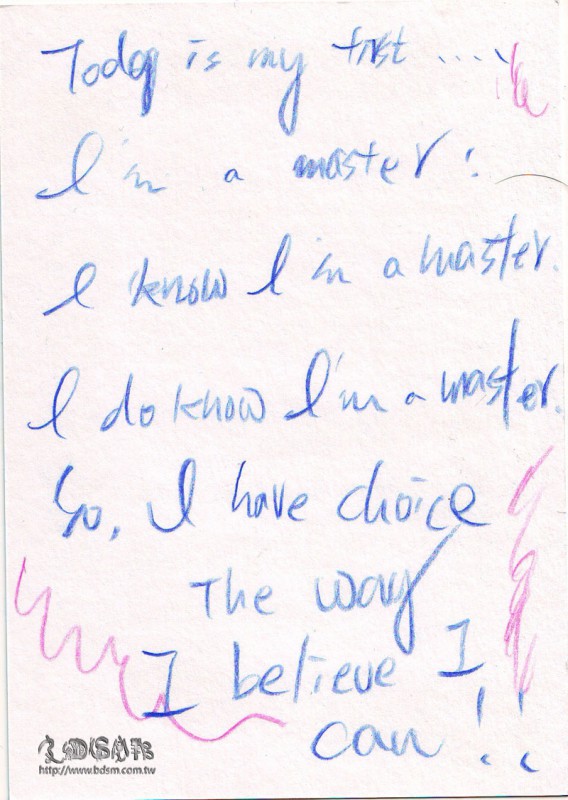 Today is my first ....
I'm a master!
I know I'm a master.
I do know I'm a master.
So, I have choice
The way
I believe I
can!!
http://www.bdsm.com.tw